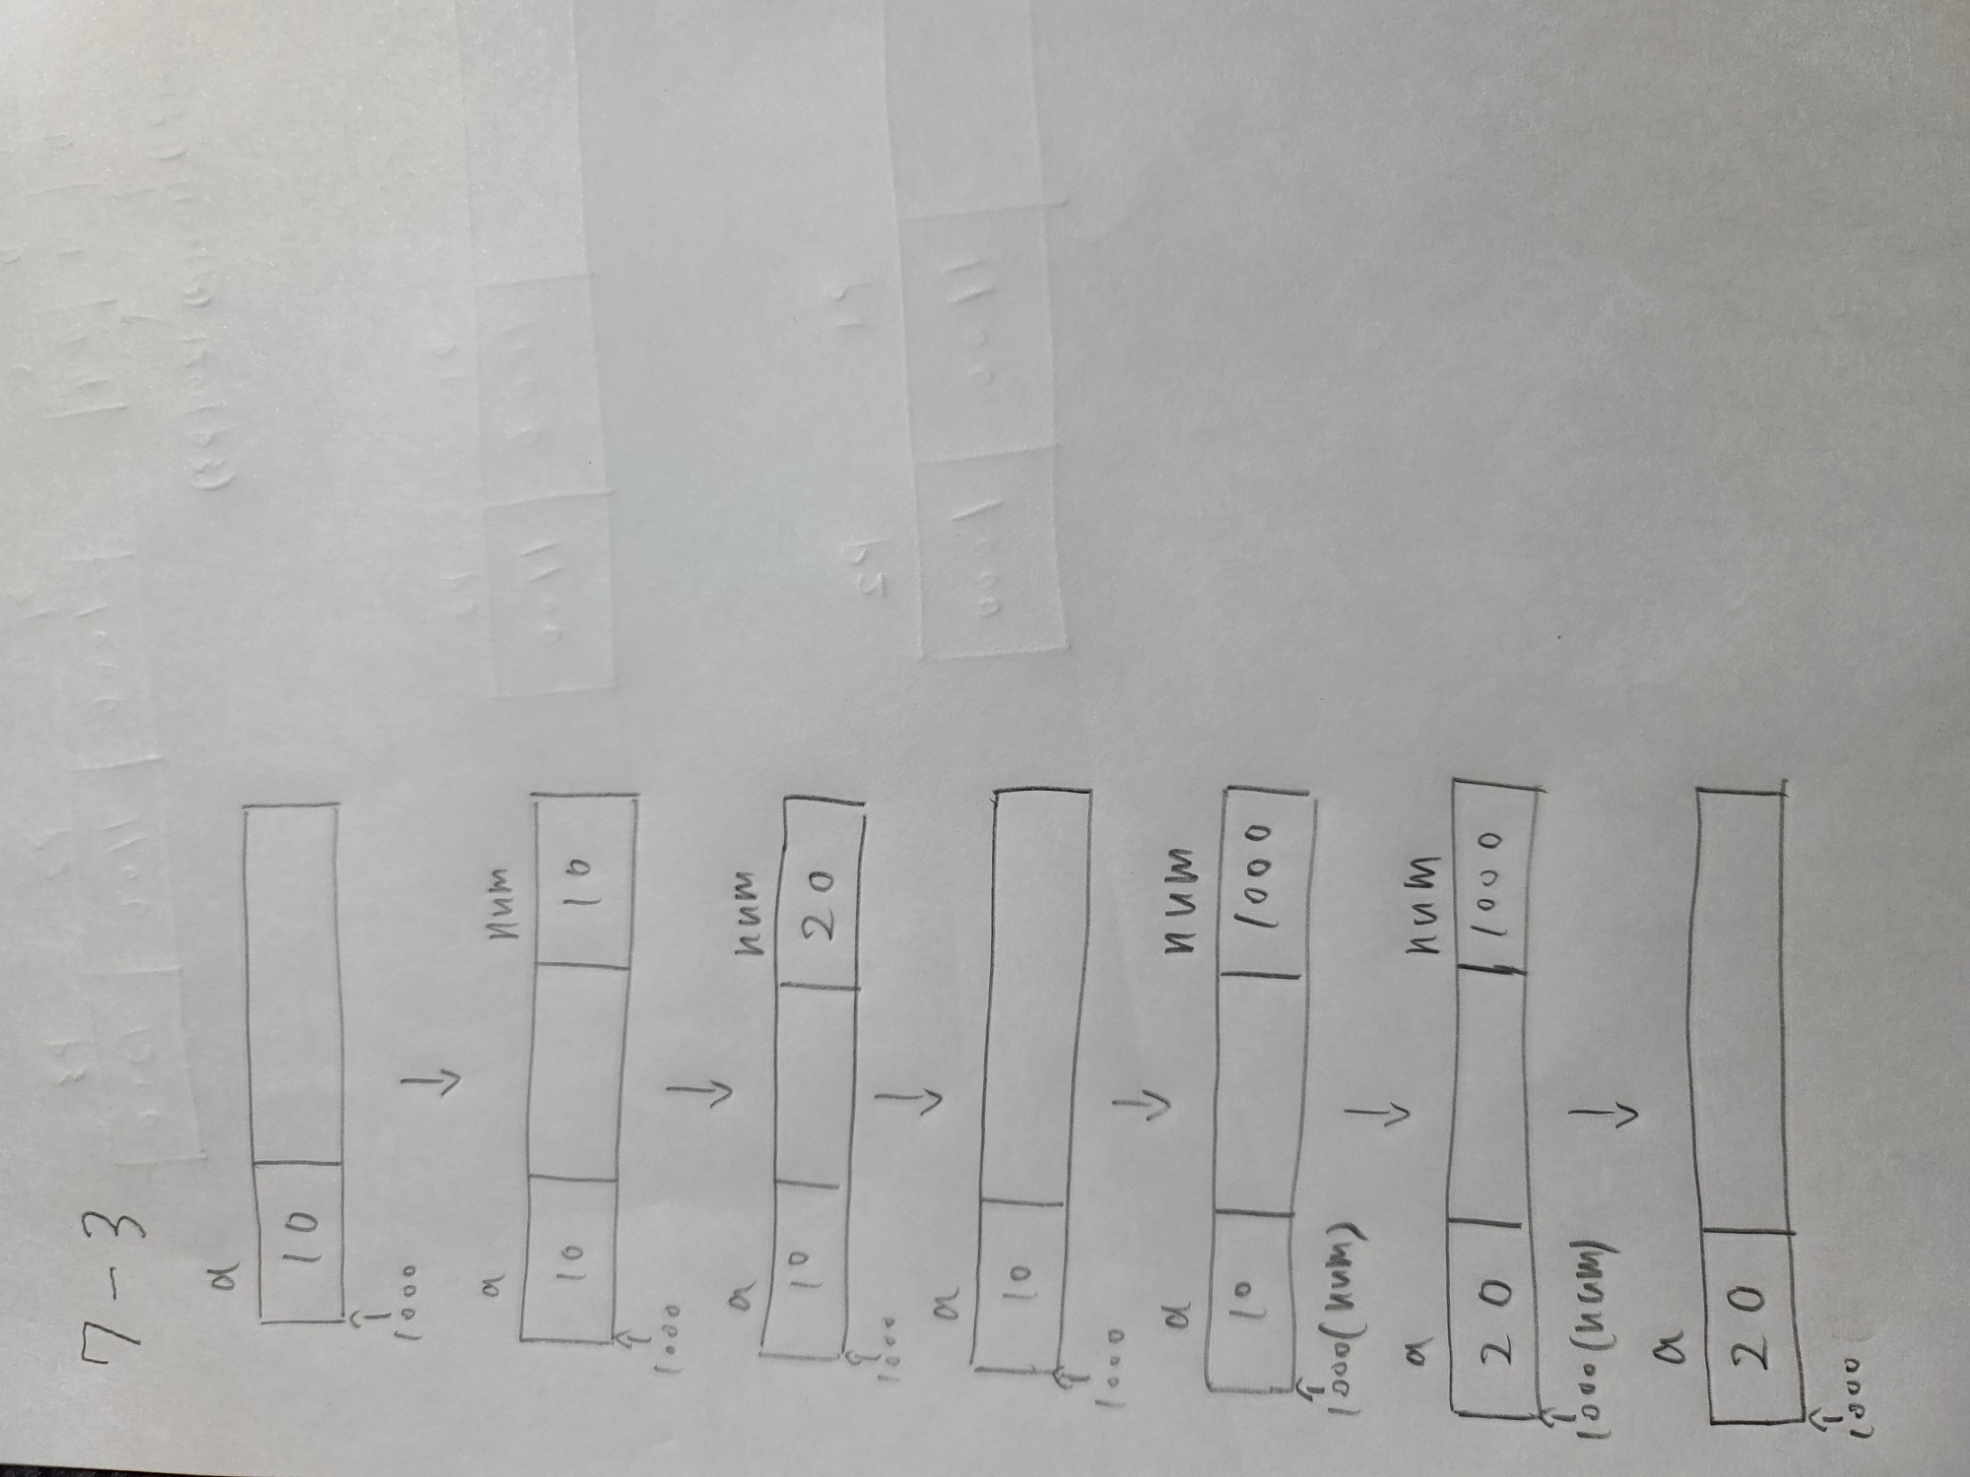 7-3
a
10
1000
↓
a num
10 10
1000
↓
a num
10 20
1000
↓
a
10
1000
↓
a num
10 1000
1000(num)
↓
a num
20 1000
1000(num)
↓
a
20
1000